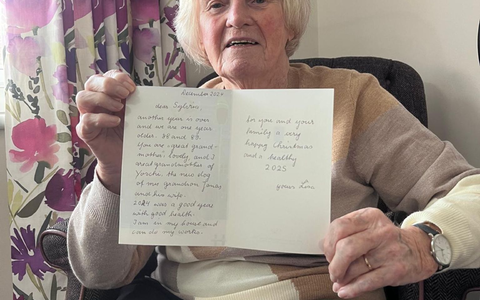 December 2024
dear Sylvia,
another year is over
and we are one year
older. 88 and 89.
You are a great grand-
mother. lovely, and I
great grandmother of
the nice boy
of mine grandson Jonas
and his wife.
2024 was a good year
with good health.
I am in my house and
can do my works.
for you and your
family a very
happy Christmas
and a healthy
2025
yours